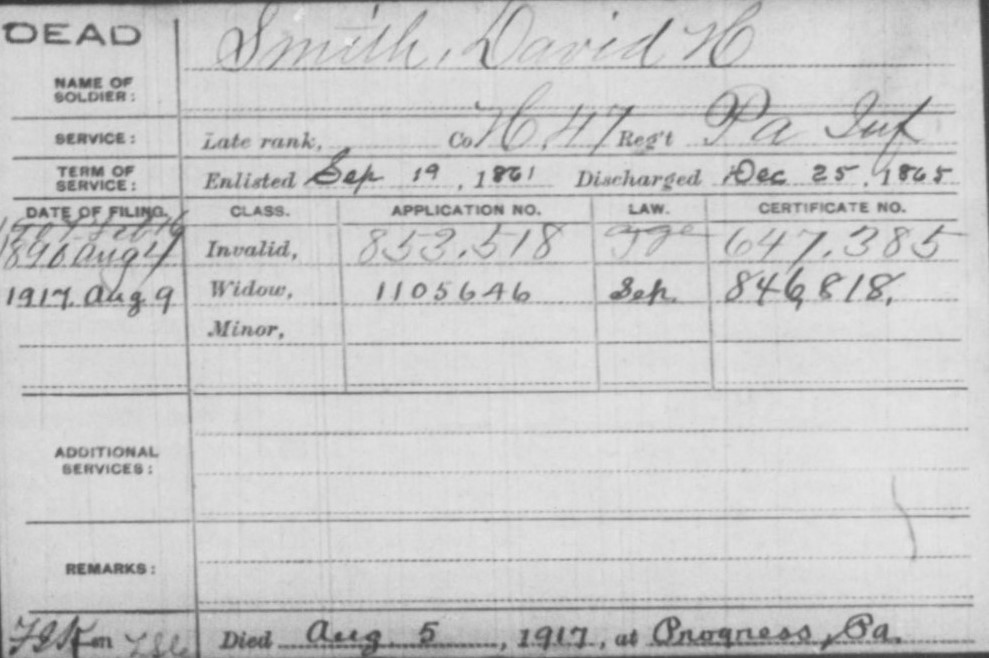 DEAD
Smith, David H
NAME OF
SOLDIER:
SERVICE: Late rank, Co H, 47 Reg't Pa Inf
TERM OF
SERVICE: Enlisted Sep 19, 1861 Discharged Dec 25, 1865
DATE OF FILING. CLASS. APPLICATION NO. LAW. CERTIFICATE NO.
1907 Feb 16
1890 Aug 4 Invalid, 853.518 647.385
1917. Aug 9 Widow, 1105646 Sep. 846,818.
Minor,
ADDITIONAL
SERVICES:
REMARKS:
Died Aug 5, 1917, at Progress, Pa.